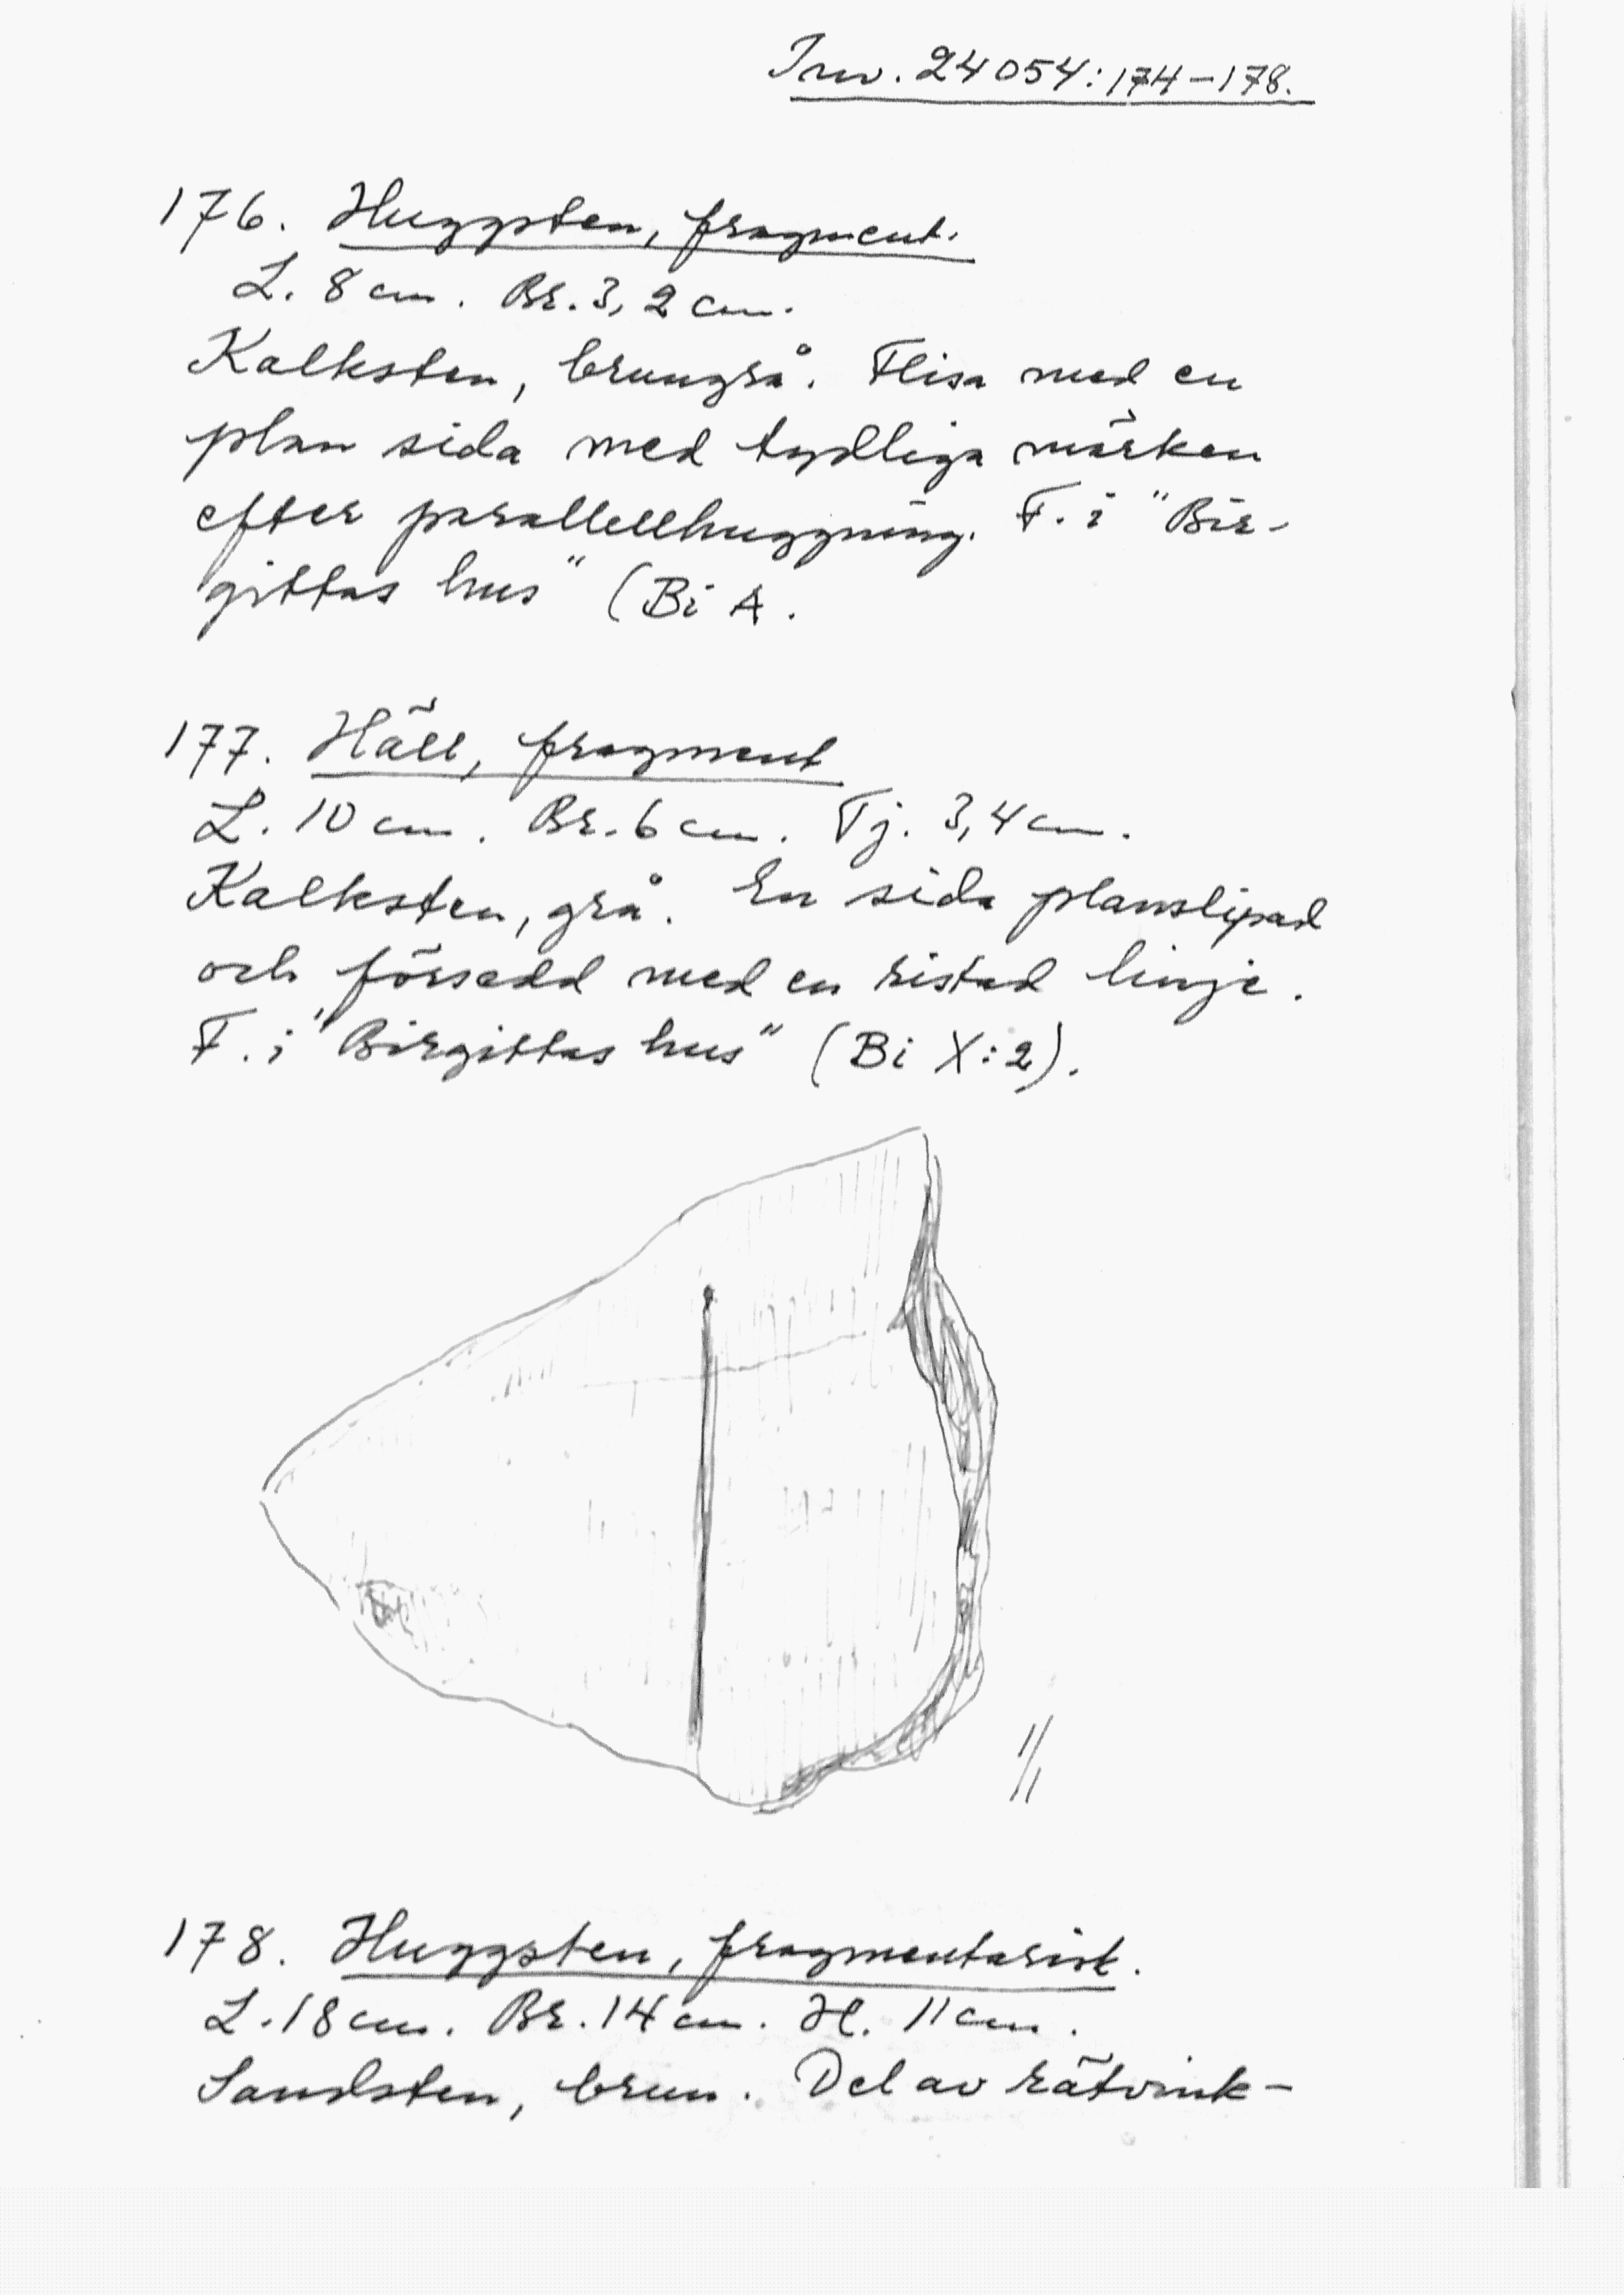 Inv. 24054:174-178.
176. Huggsten, fragment.
L. 8 cm. Br. 3,2 cm.
Kalksten, brungrå. Flisa med en
plan sida med tydliga märken
efter parallellhuggning. F. i "Bir-
gittas hus" (Bi A.
177. Häll, fragment
L. 10 cm. Br. 6 cm. Tj. 3,4 cm.
Kalksten, grå. En sida planslipad
och försedd med en ristad linje.
F. i "Birgittas hus" (Bi X:2).
1/1
178. Huggsten, fragmentarisk.
L. 18 cm. Br. 14 cm. H. 11 cm.
Sandsten, brun. Del av rätvink-